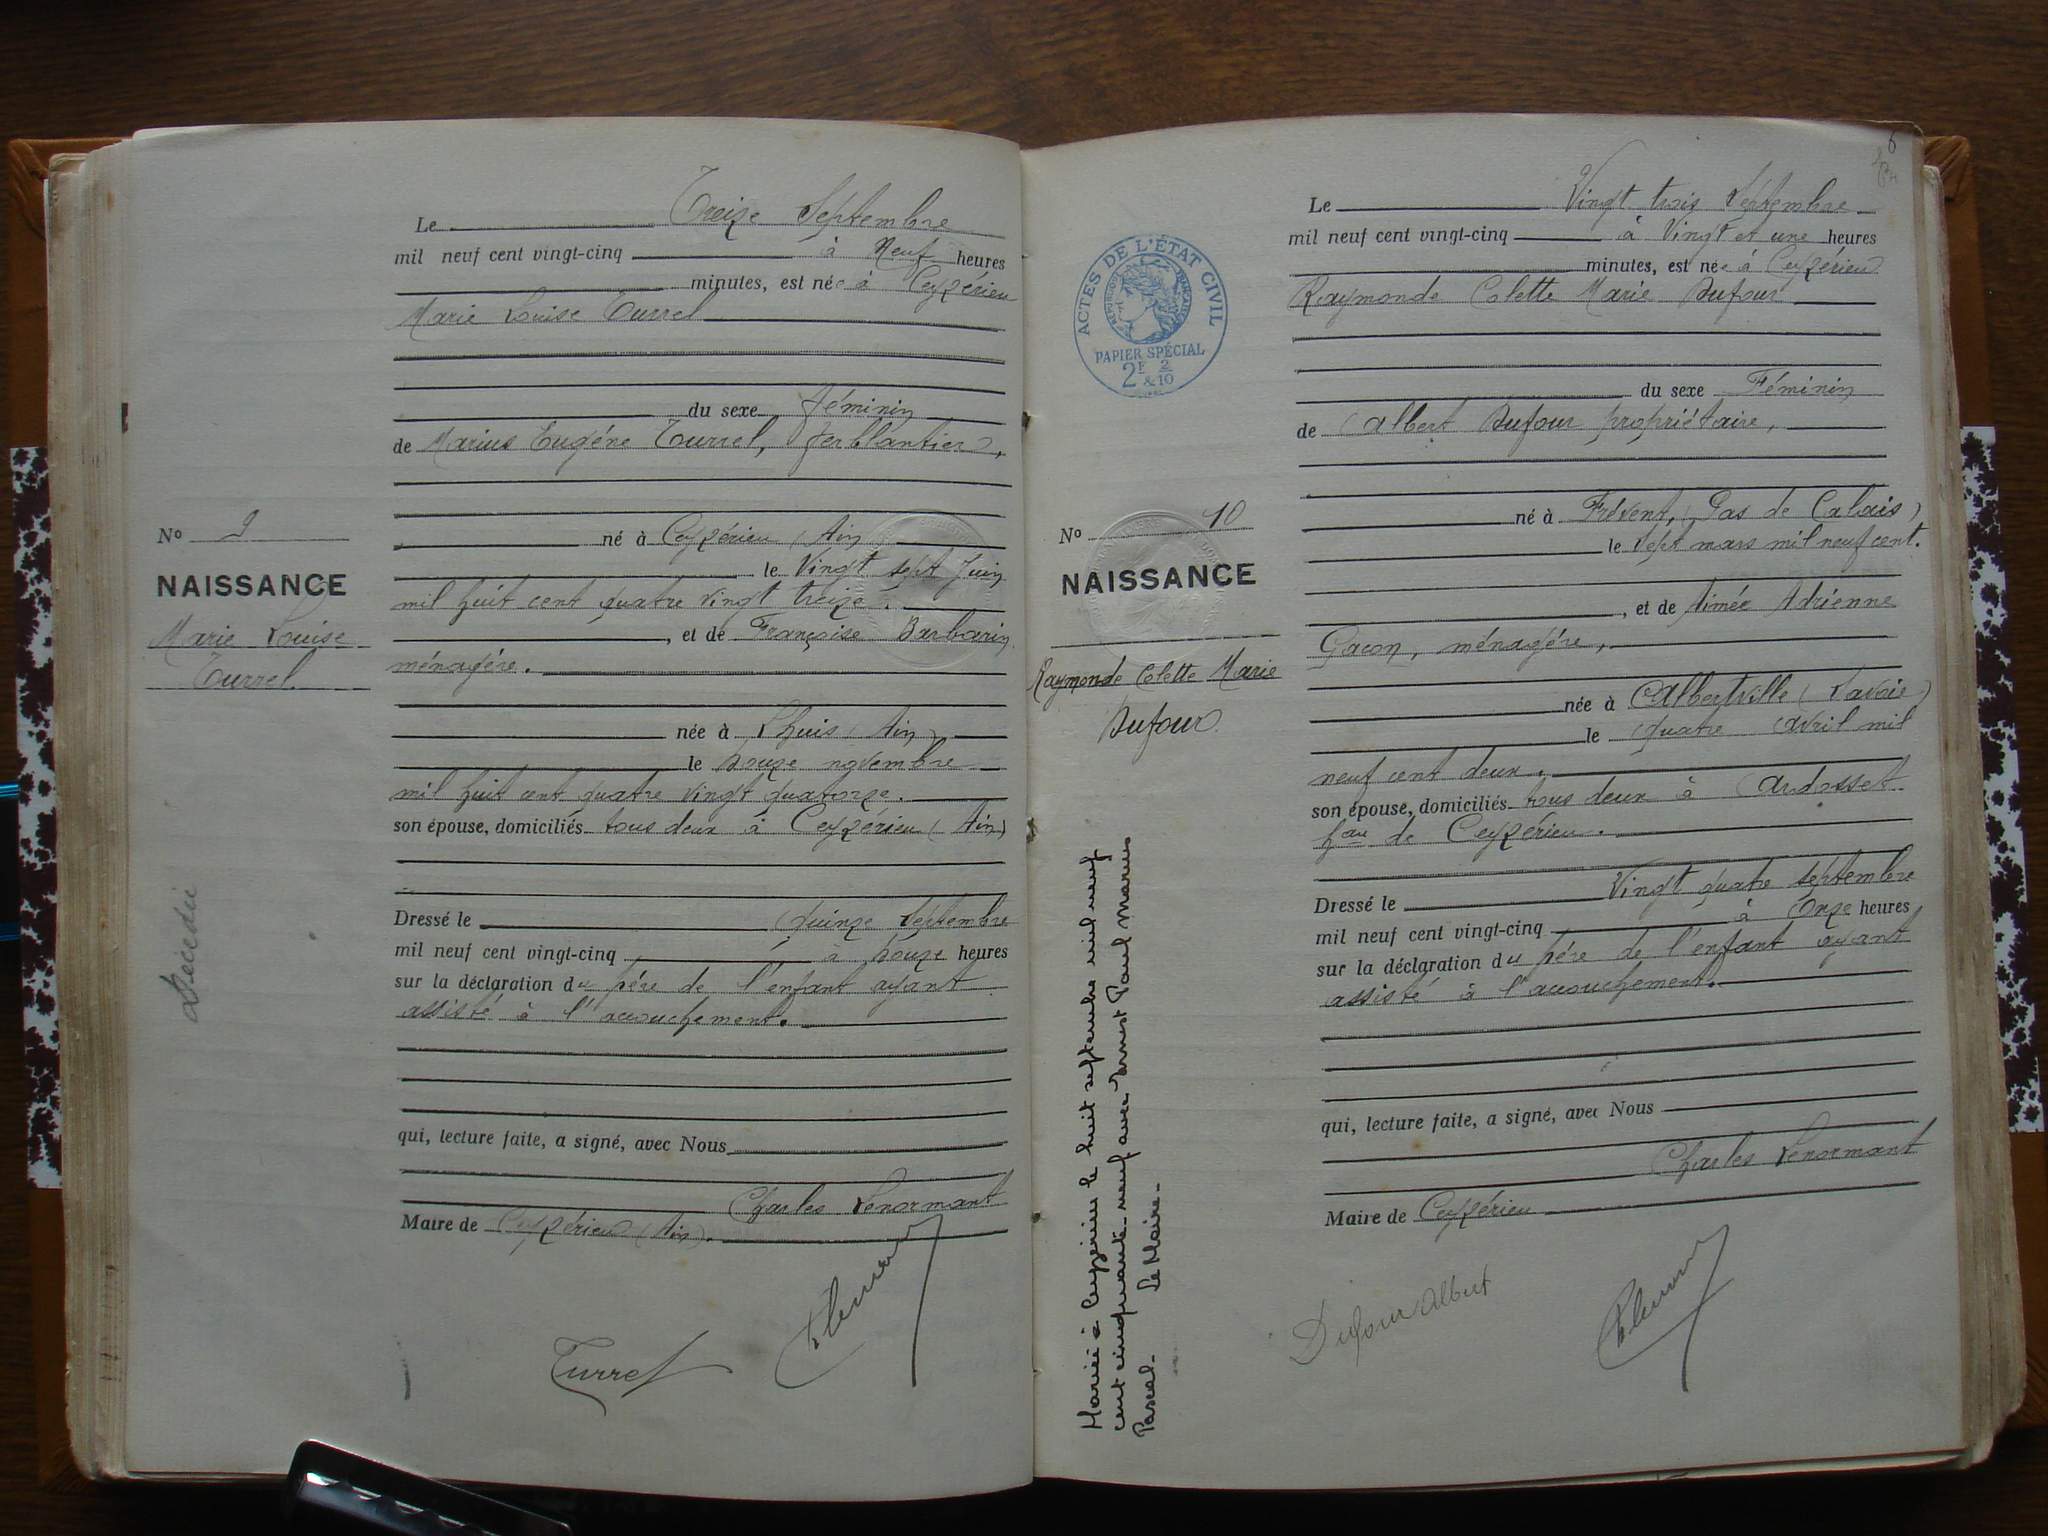 Le Treize Septembre
mil neuf cent vingt-cinq à Neuf heures
minutes, est née à Ceyzérieu
Marie Louise Turrel
du sexe féminin
de Marius Eugéne Turrel, ferblantier,
né à Ceyzérieu (Ain)
le Vingt sept Juin
mil huit cent quatre vingt treize.
, et de Françoise Barbarin
ménagére.
née à Lhuis (Ain)
le Douze novembre
mil huit cent quatre vingt quatorze.
son épouse, domiciliés tous deux à Ceyzérieu (Ain)
Dressé le quinze Septembre
mil neuf cent vingt-cinq à Douze heures
sur la déclaration du pére de l'enfant ayant
assisté à l'accouchement.
qui, lecture faite, a signé, avec Nous
Charles Lenormant
Maire de Ceyzérieu (Ain).
Turrel
No 9
NAISSANCE
Marie Louise
Turrel.
Décédée
6
Le Vingt trois Septembre
mil neuf cent vingt-cinq à Vingt et une heures
minutes, est née à Ceyzérieu
Raymonde Colette Marie Dufour
du sexe Féminin
de Albert Dufour propriétaire,
né à Frévent, (Pas de Calais)
le sept mars mil neuf cent.
, et de Aimée Adrienne
Gacon, ménagére,
née à Albertville (Savoie)
le quatre avril mil
neuf cent deux.
son épouse, domiciliés tous deux à Ardosset
hau de Ceyzérieu.
Dressé le Vingt quatre septembre
mil neuf cent vingt-cinq à Onze heures
sur la déclaration du pére de l'enfant ayant
assisté à l'accouchement.
qui, lecture faite, a signé, avec Nous
Charles Lenormant
Maire de Ceyzérieu
Dufour Albert
ACTES DE L'ÉTAT CIVIL
RÉPUBLIQUE FRANÇAISE
PAPIER SPÉCIAL
2F & 2/10
No 10
NAISSANCE
Raymonde Colette Marie
Dufour.
Mariée à Ceyzérieu le huit septembre mil neuf
cent cinquante-neuf avec Ernest Paul Marius
Pascal - Le Maire -